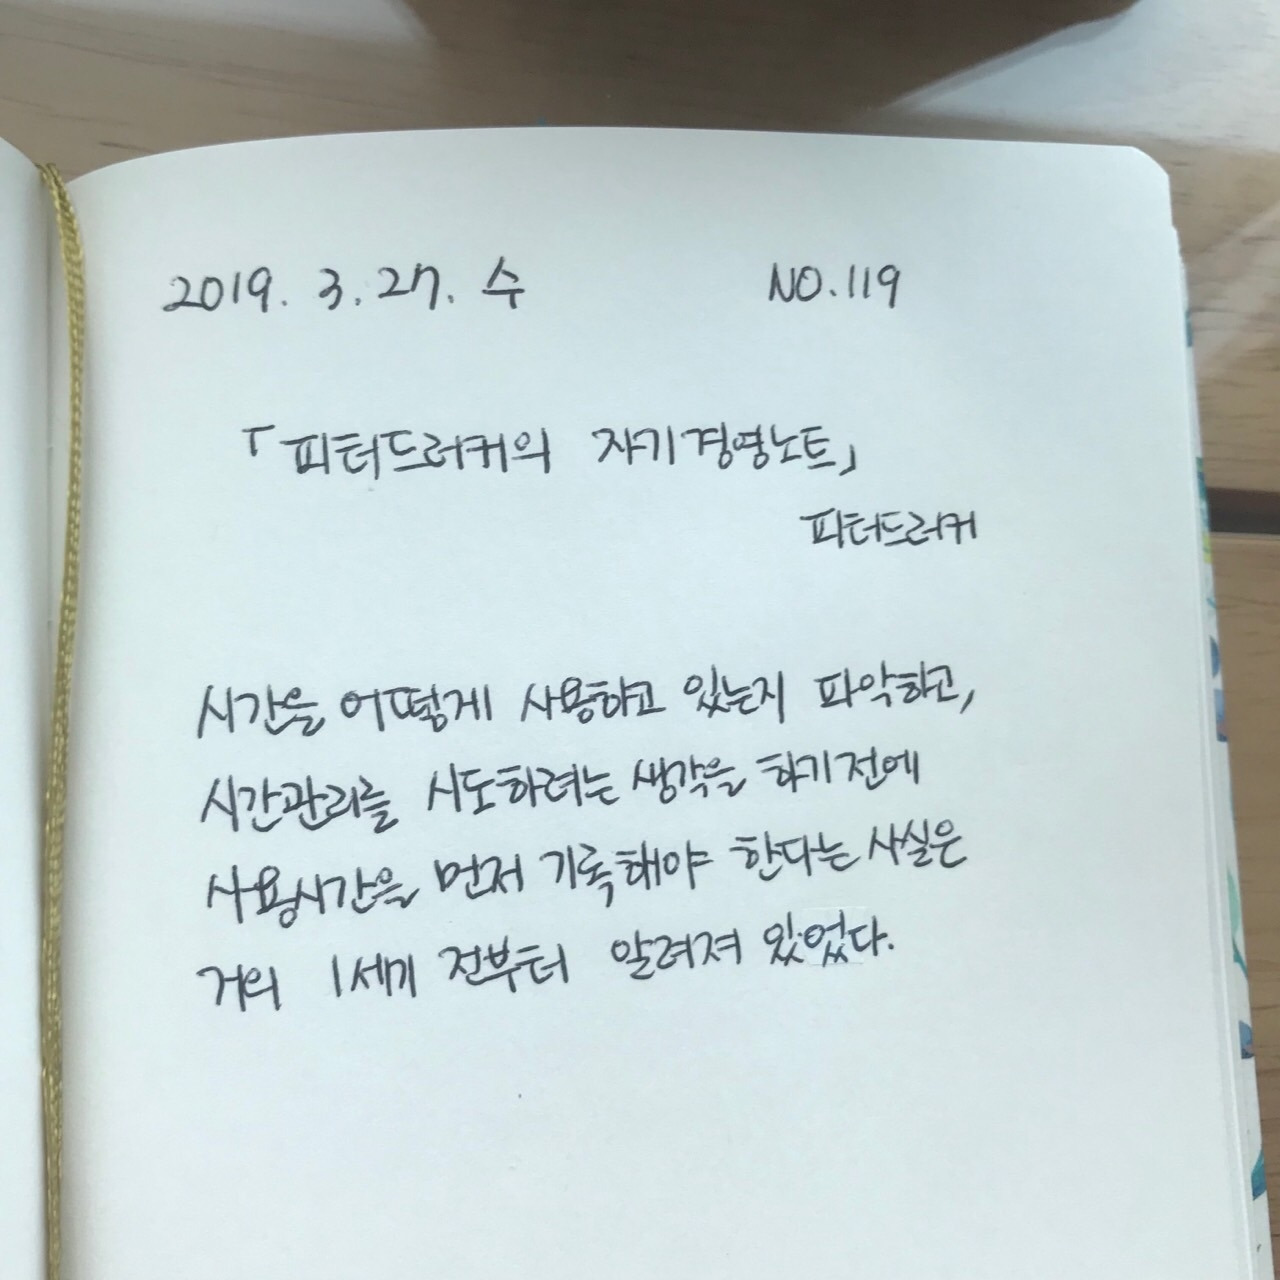 2019. 3. 27. 수
NO. 119
「피터드러커의 자기경영노트」
피터드러커
시간을 어떻게 사용하고 있는지 파악하고,
시간관리를 시도하려는 생각을 하기전에
사용시간을 먼저 기록해야 한다는 사실은
거의 1세기 전부터 알려져 있었다.